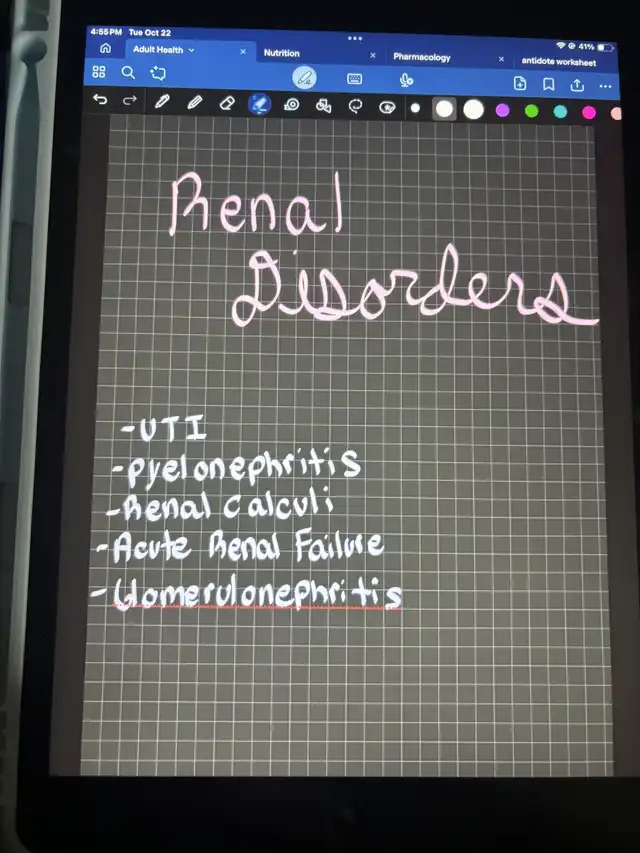 4:55PM Tue Oct 22
41%
Adult Health
Nutrition
Pharmacology
antidote worksheet
Renal
Disorders
-UTI
-pyelonephritis
-Renal calculi
-Acute Renal Failure
-Glomerulonephritis